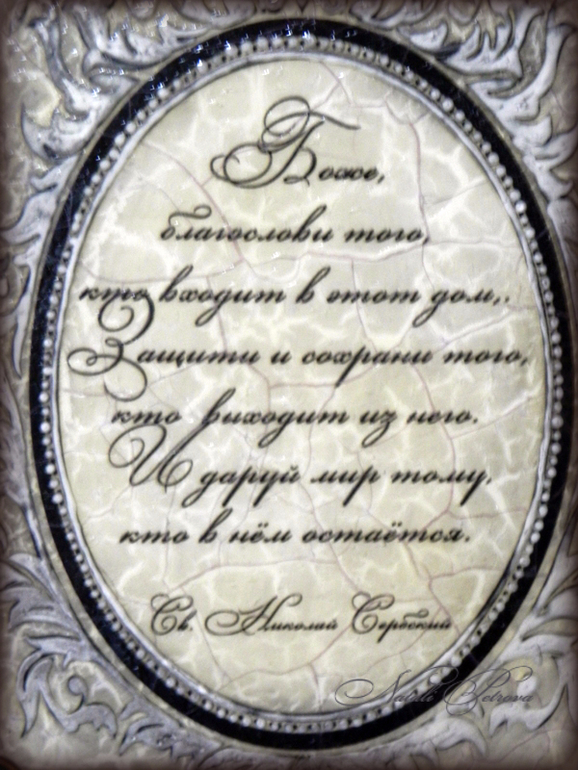 Боже,
благослови того,
кто входит в этот дом,.
Защити и сохрани того,
кто выходит из него.
И даруй мир тому,
кто в нём остаётся.
Св. Николай Сербский
Natali Petrova